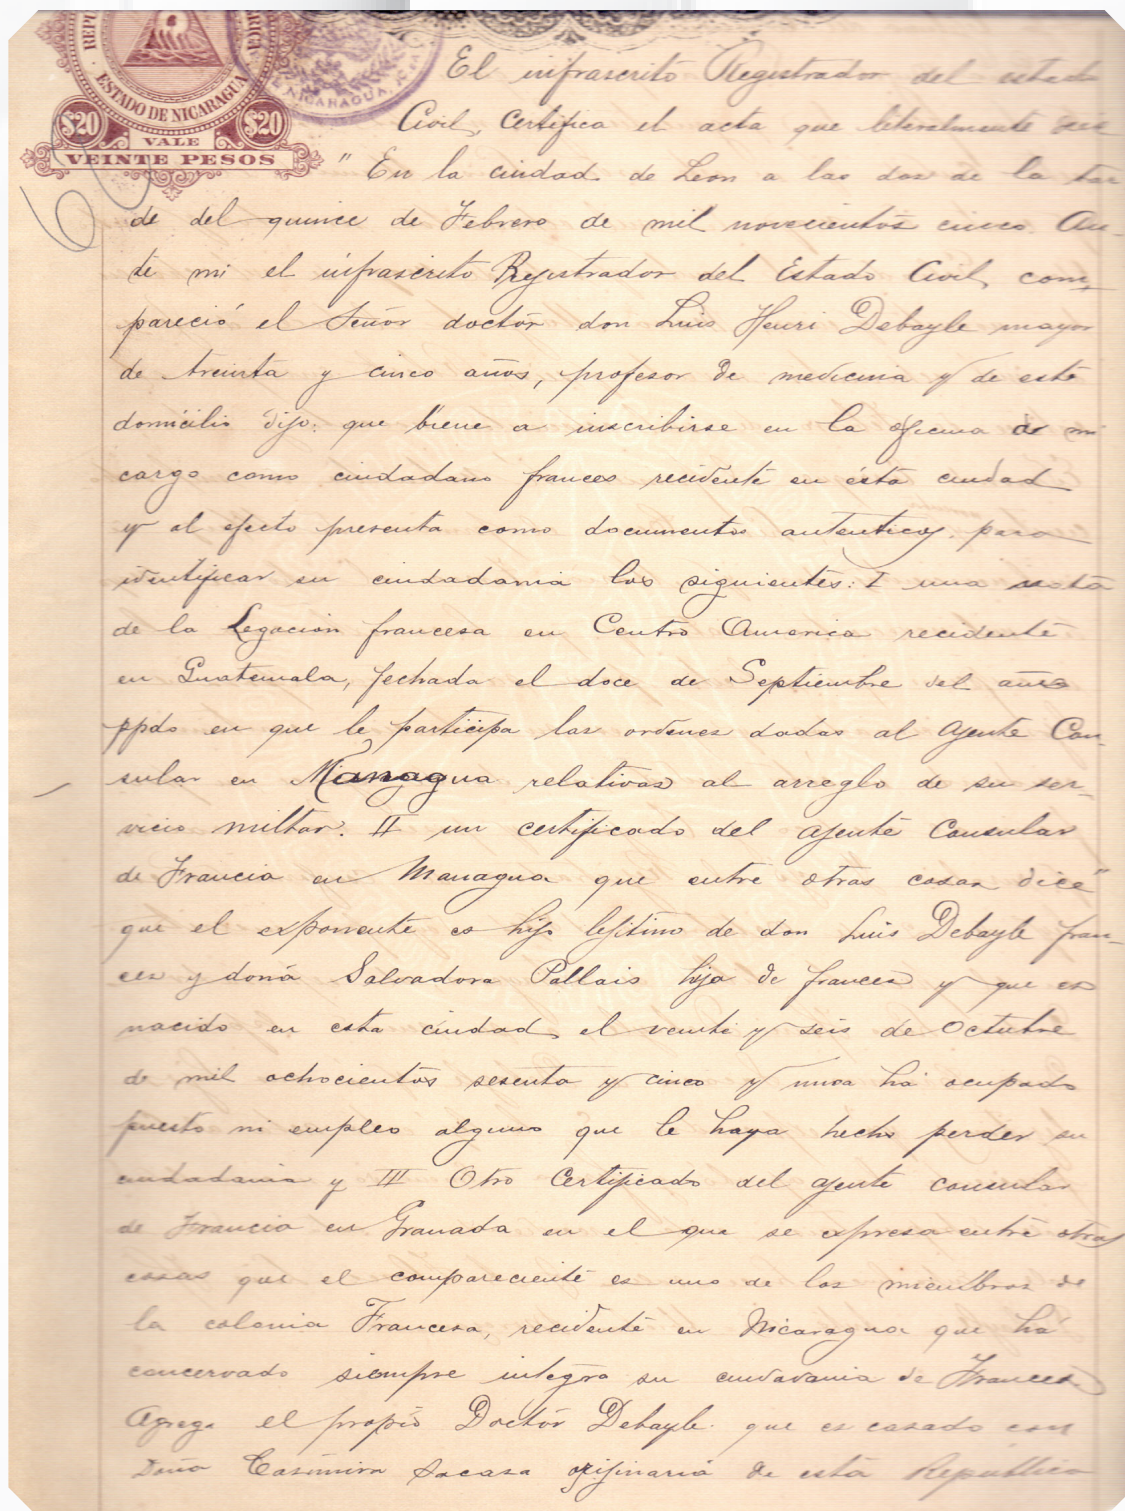 REPU
ESTADO DE NICARAGUA
$20 $20
VALE
VEINTE PESOS
NICARAGUA
El infrascrito Registrador del estado
Civil, Certifica el acta que literalmente dice
" En la ciudad de Leon a las dos de la tar
de del quince de Febrero de mil novecientos cinco An-
te mi el infrascrito Registrador del Estado Civil, com-
pareció el Señor doctor don Luis Henri Debayle mayor
de treinta y cinco años, profesor de medicina y de este
domicilio dijo: que biene a inscribirse en la oficina de mi
cargo como ciudadano frances recidente en ésta ciudad
y al efecto presenta como documentos autenticos para
identificar su ciudadania los siguientes: I una nota
de la Legación francesa en Centro America recidente
en Guatemala, fechada el doce de Septiembre del año
ppdo en que le participa las ordenes dadas al agente Con-
sular en Managua relativas al arreglo de su ser-
vicio miltar. II un certificado del agente Consular
de Francia en Managua que entre otras cosas dice"
que el exponente es hijo lejitimo de don Luis Debayle fran-
ces y doña Salvadora Pallais hija de frances y que es
nacido en esta ciudad el veinte y seis de Octubre
de mil ochocientos sesenta y cinco y nunca há ocupado
puesto ni empleo alguno que le haya hecho perder su
ciudadania y III Otro Certificado del agente consular
de Francia en Granada en el que se expresa entre otras
cosas que el compareciente es uno de los miembros de
la colonia Francesa, recidente en Nicaragua que há
concervado siempre integro su ciudadania de Frances
Agrega el propio Doctór Debayle que es casado con
Doña Casimira Sacasa orijinaria de esta República